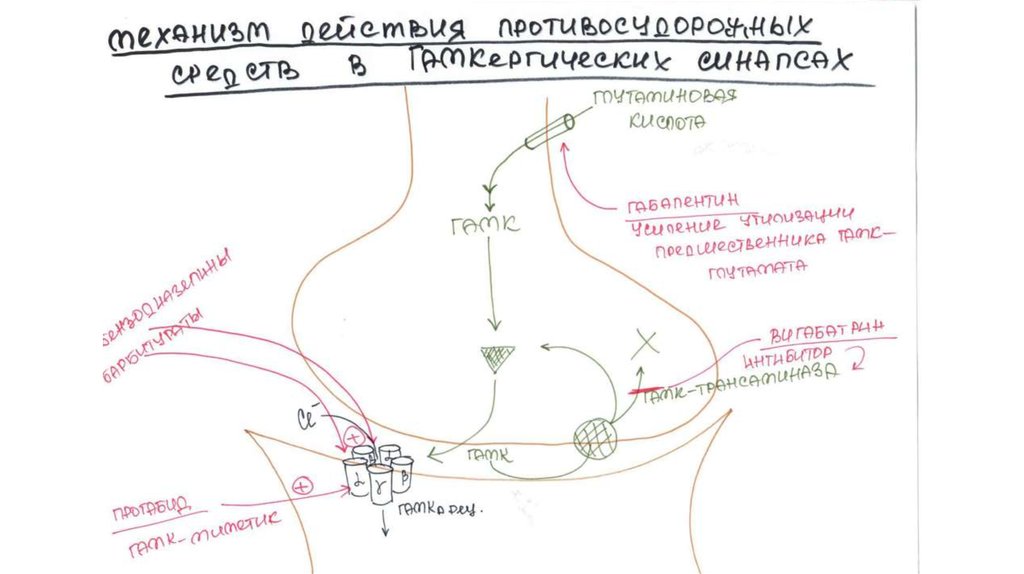 МЕХАНИЗМ ДЕЙСТВИЯ ПРОТИВОСУДОРОЖНЫХ
СРЕДСТВ В ГАМКЕРГИЧЕСКИХ СИНАПСАХ
ГЛУТАМИНОВАЯ
КИСЛОТА
ГАМК
ГАБАПЕНТИН
УСИЛЕНИЕ УТИЛИЗАЦИИ
ПРЕДШЕСТВЕННИКА ГАМК-
ГЛУТАМАТА
БЕНЗОДИАЗЕПИНЫ
БАРБИТУРАТЫ
X
ВИГАБАТРИН
ИНГИБИТОР
ГАМК-ТРАНСАМИНАЗА
Cl-
+
ГАМК
α γ β
+
ПРОГАБИД
ГАМК-МИМЕТИК
ГАМКА рец.